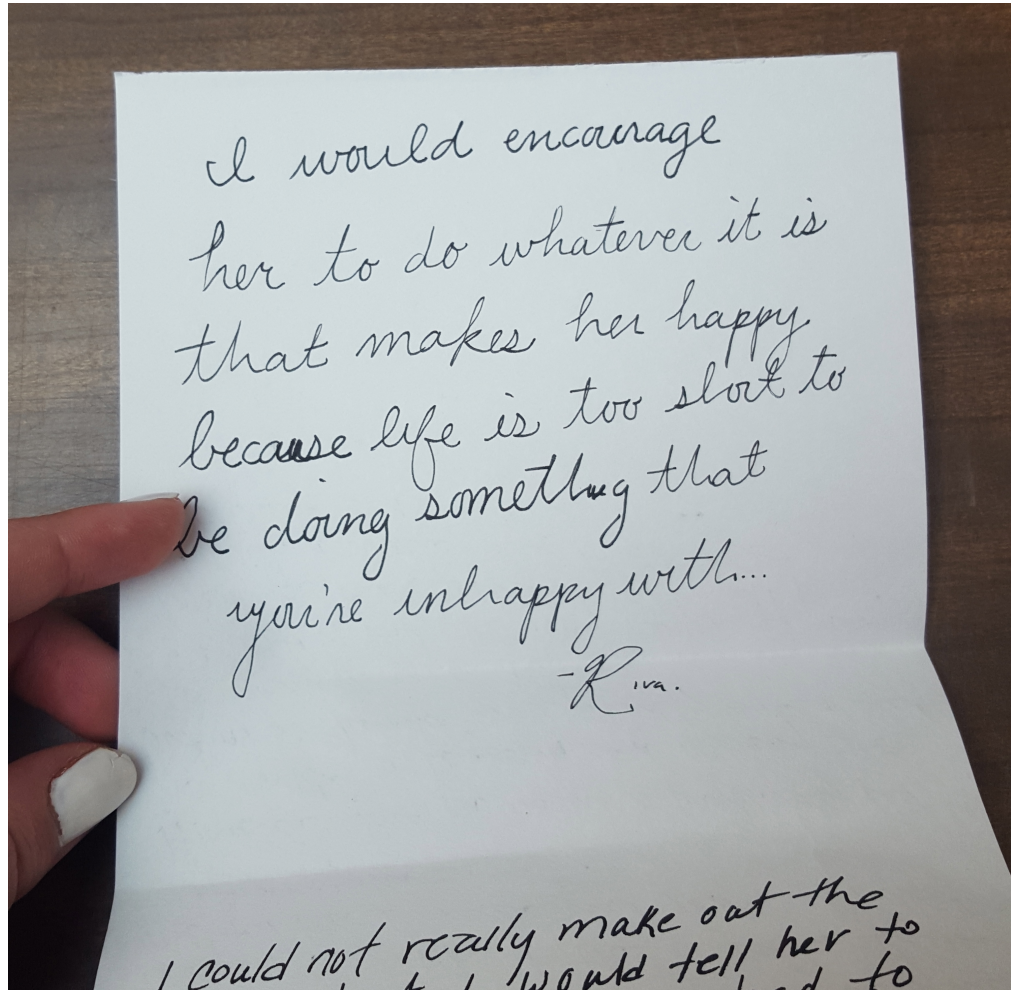 I would encourage
her to do whatever it is
that makes her happy
because life is too short to
be doing something that
you're unhappy with...
-Riva.
I could not really make out the
would tell her to
to